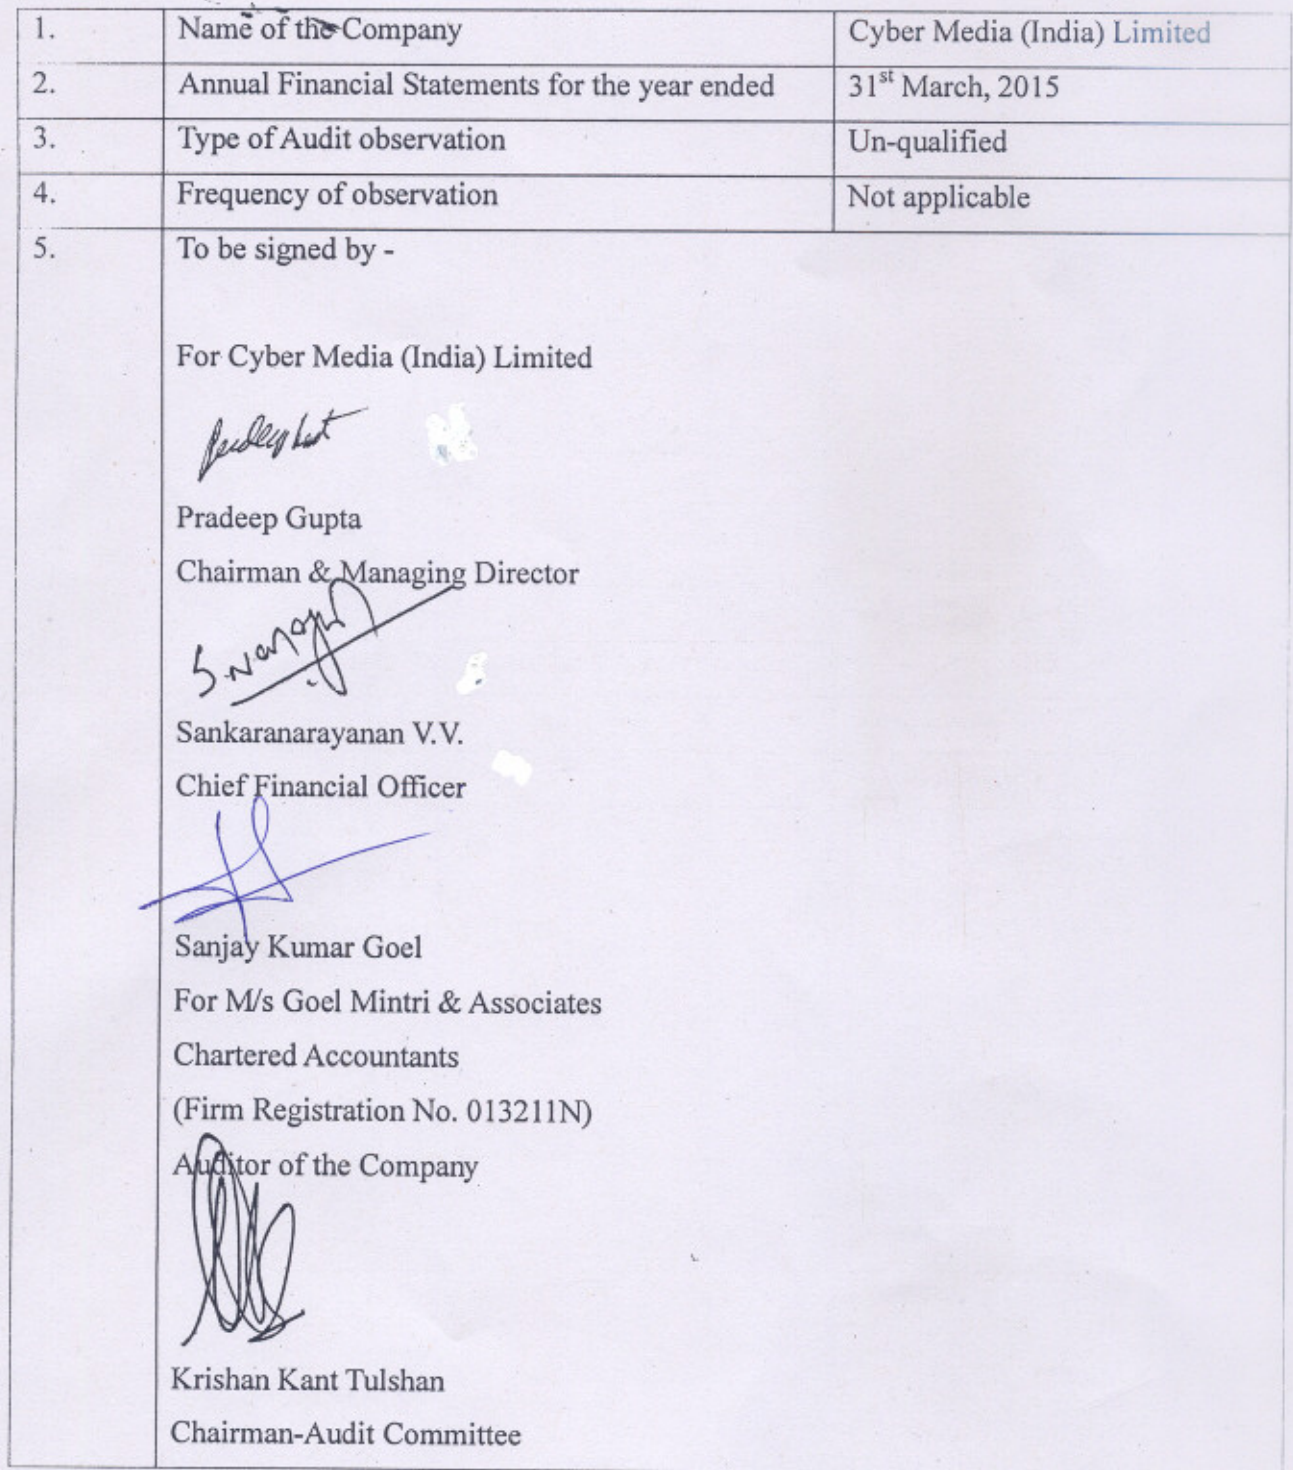 1. Name of the Company Cyber Media (India) Limited
2. Annual Financial Statements for the year ended 31st March, 2015
3. Type of Audit observation Un-qualified
4. Frequency of observation Not applicable
5. To be signed by -
For Cyber Media (India) Limited
Pradeep Gupta
Chairman & Managing Director
Sankaranarayanan V.V.
Chief Financial Officer
Sanjay Kumar Goel
For M/s Goel Mintri & Associates
Chartered Accountants
(Firm Registration No. 013211N)
Auditor of the Company
Krishan Kant Tulshan
Chairman-Audit Committee